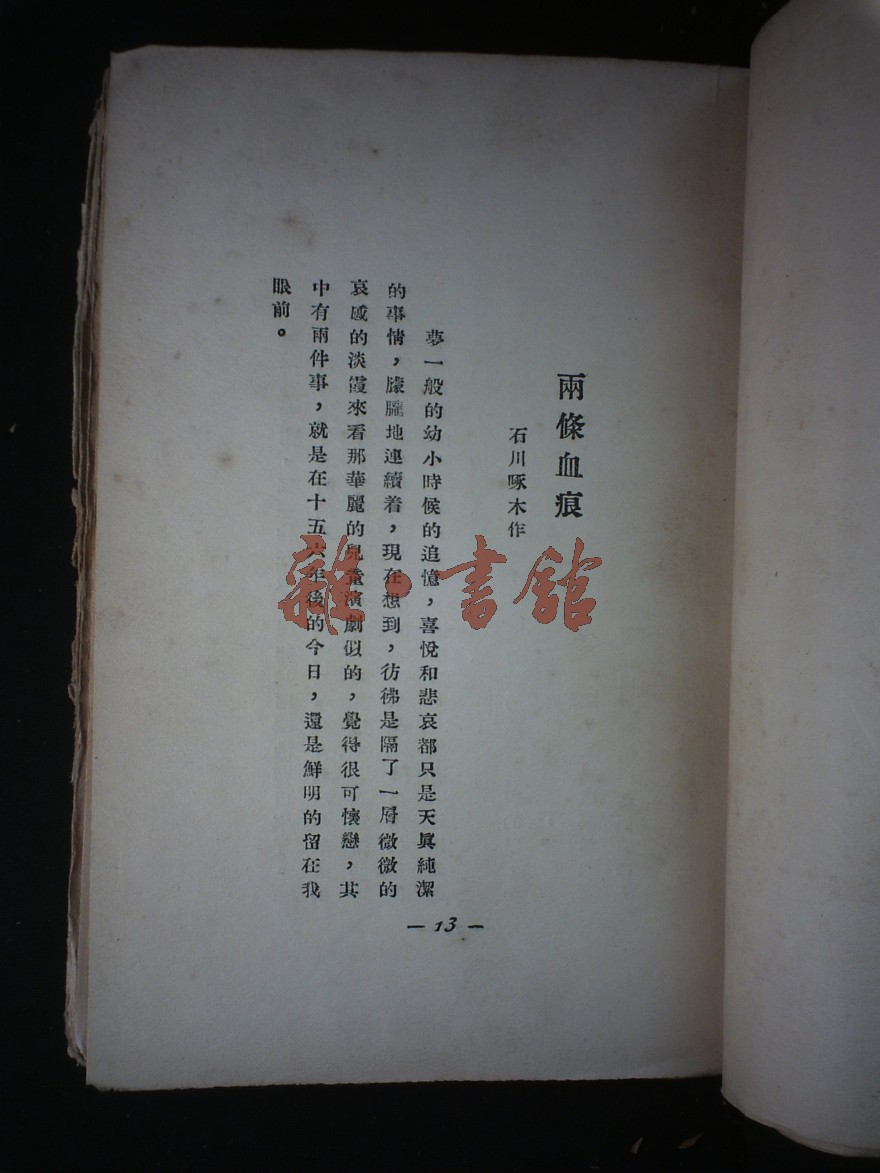 兩條血痕
石川啄木作
夢一般的幼小時候的追憶，喜悅和悲哀都只是天眞純潔
的事情，朦朧地連續着，現在想到，彷彿是隔了一層微微的
哀感的淡霞來看那華麗的兒童演劇似的，覺得很可懷戀，其
中有兩件事，就是在十五六年後的今日，還是鮮明的留在我
眼前。
— 13 —
雜·書館